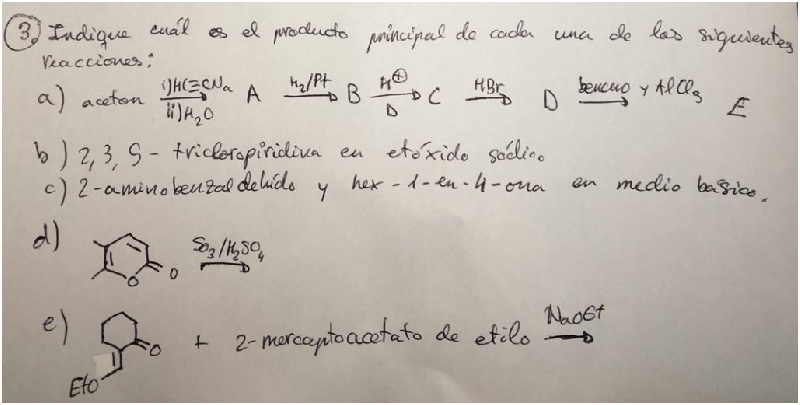 3. Indique cuál es el producto principal de cada una de las siguientes
reacciones:
a) aceton i) HC≡CNa ii) H2O A H2/Pt B H⊕ Δ C HBr D benceno y AlCl3 E
b) 2,3,5-tricloropiridina en etóxido sódico
c) 2-aminobenzaldehído y hex-1-en-4-ona en medio básico.
d) O O SO3/H2SO4
e) O EtO + 2-mercaptoacetato de etilo NaOEt